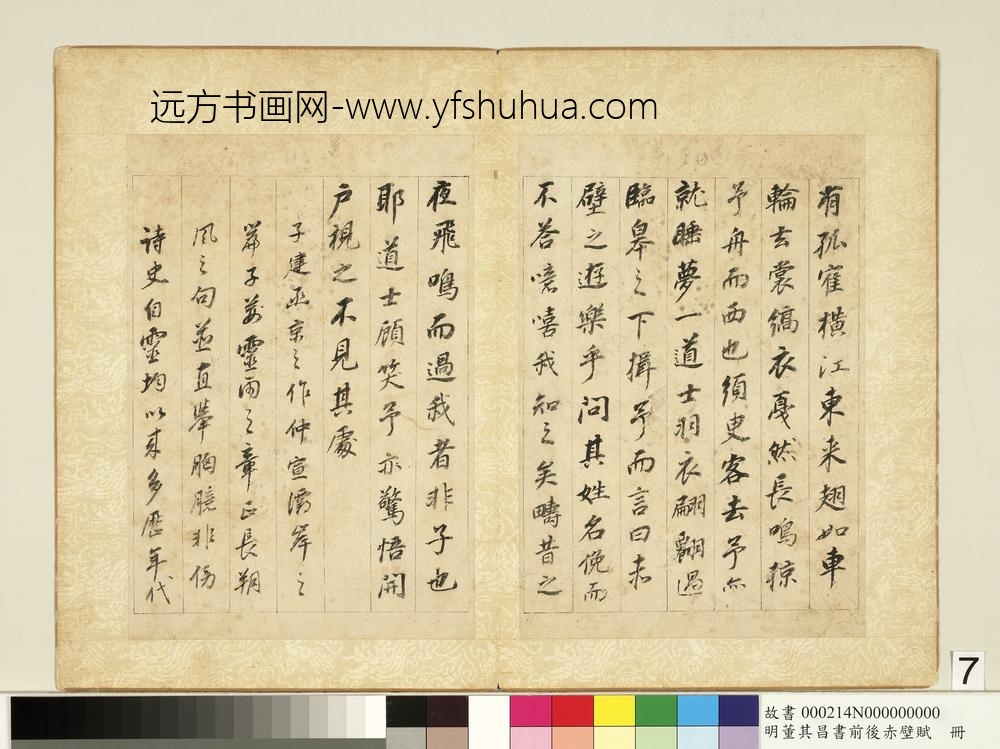 远方书画网-www.yfshuhua.com
有孤寉橫江東来翅如車
輪玄裳縞衣戛然長鳴掠
予舟而西也須臾客去予亦
就睡夢一道士羽衣翩翩過
臨皋之下揖予而言曰赤
壁之遊樂乎問其姓名俛而
不答噫嘻我知之矣疇昔之
夜飛鳴而過我者非子也
耶道士顧笑予亦驚悟開
户視之不見其處
子建函京之作仲宣灞岸之
篇子荊零雨之章正長朔
風之句並直舉胸臆非傍
詩史自靈均以來多歷年代
7
故書 000214N000000000
明董其昌書前後赤壁賦 冊